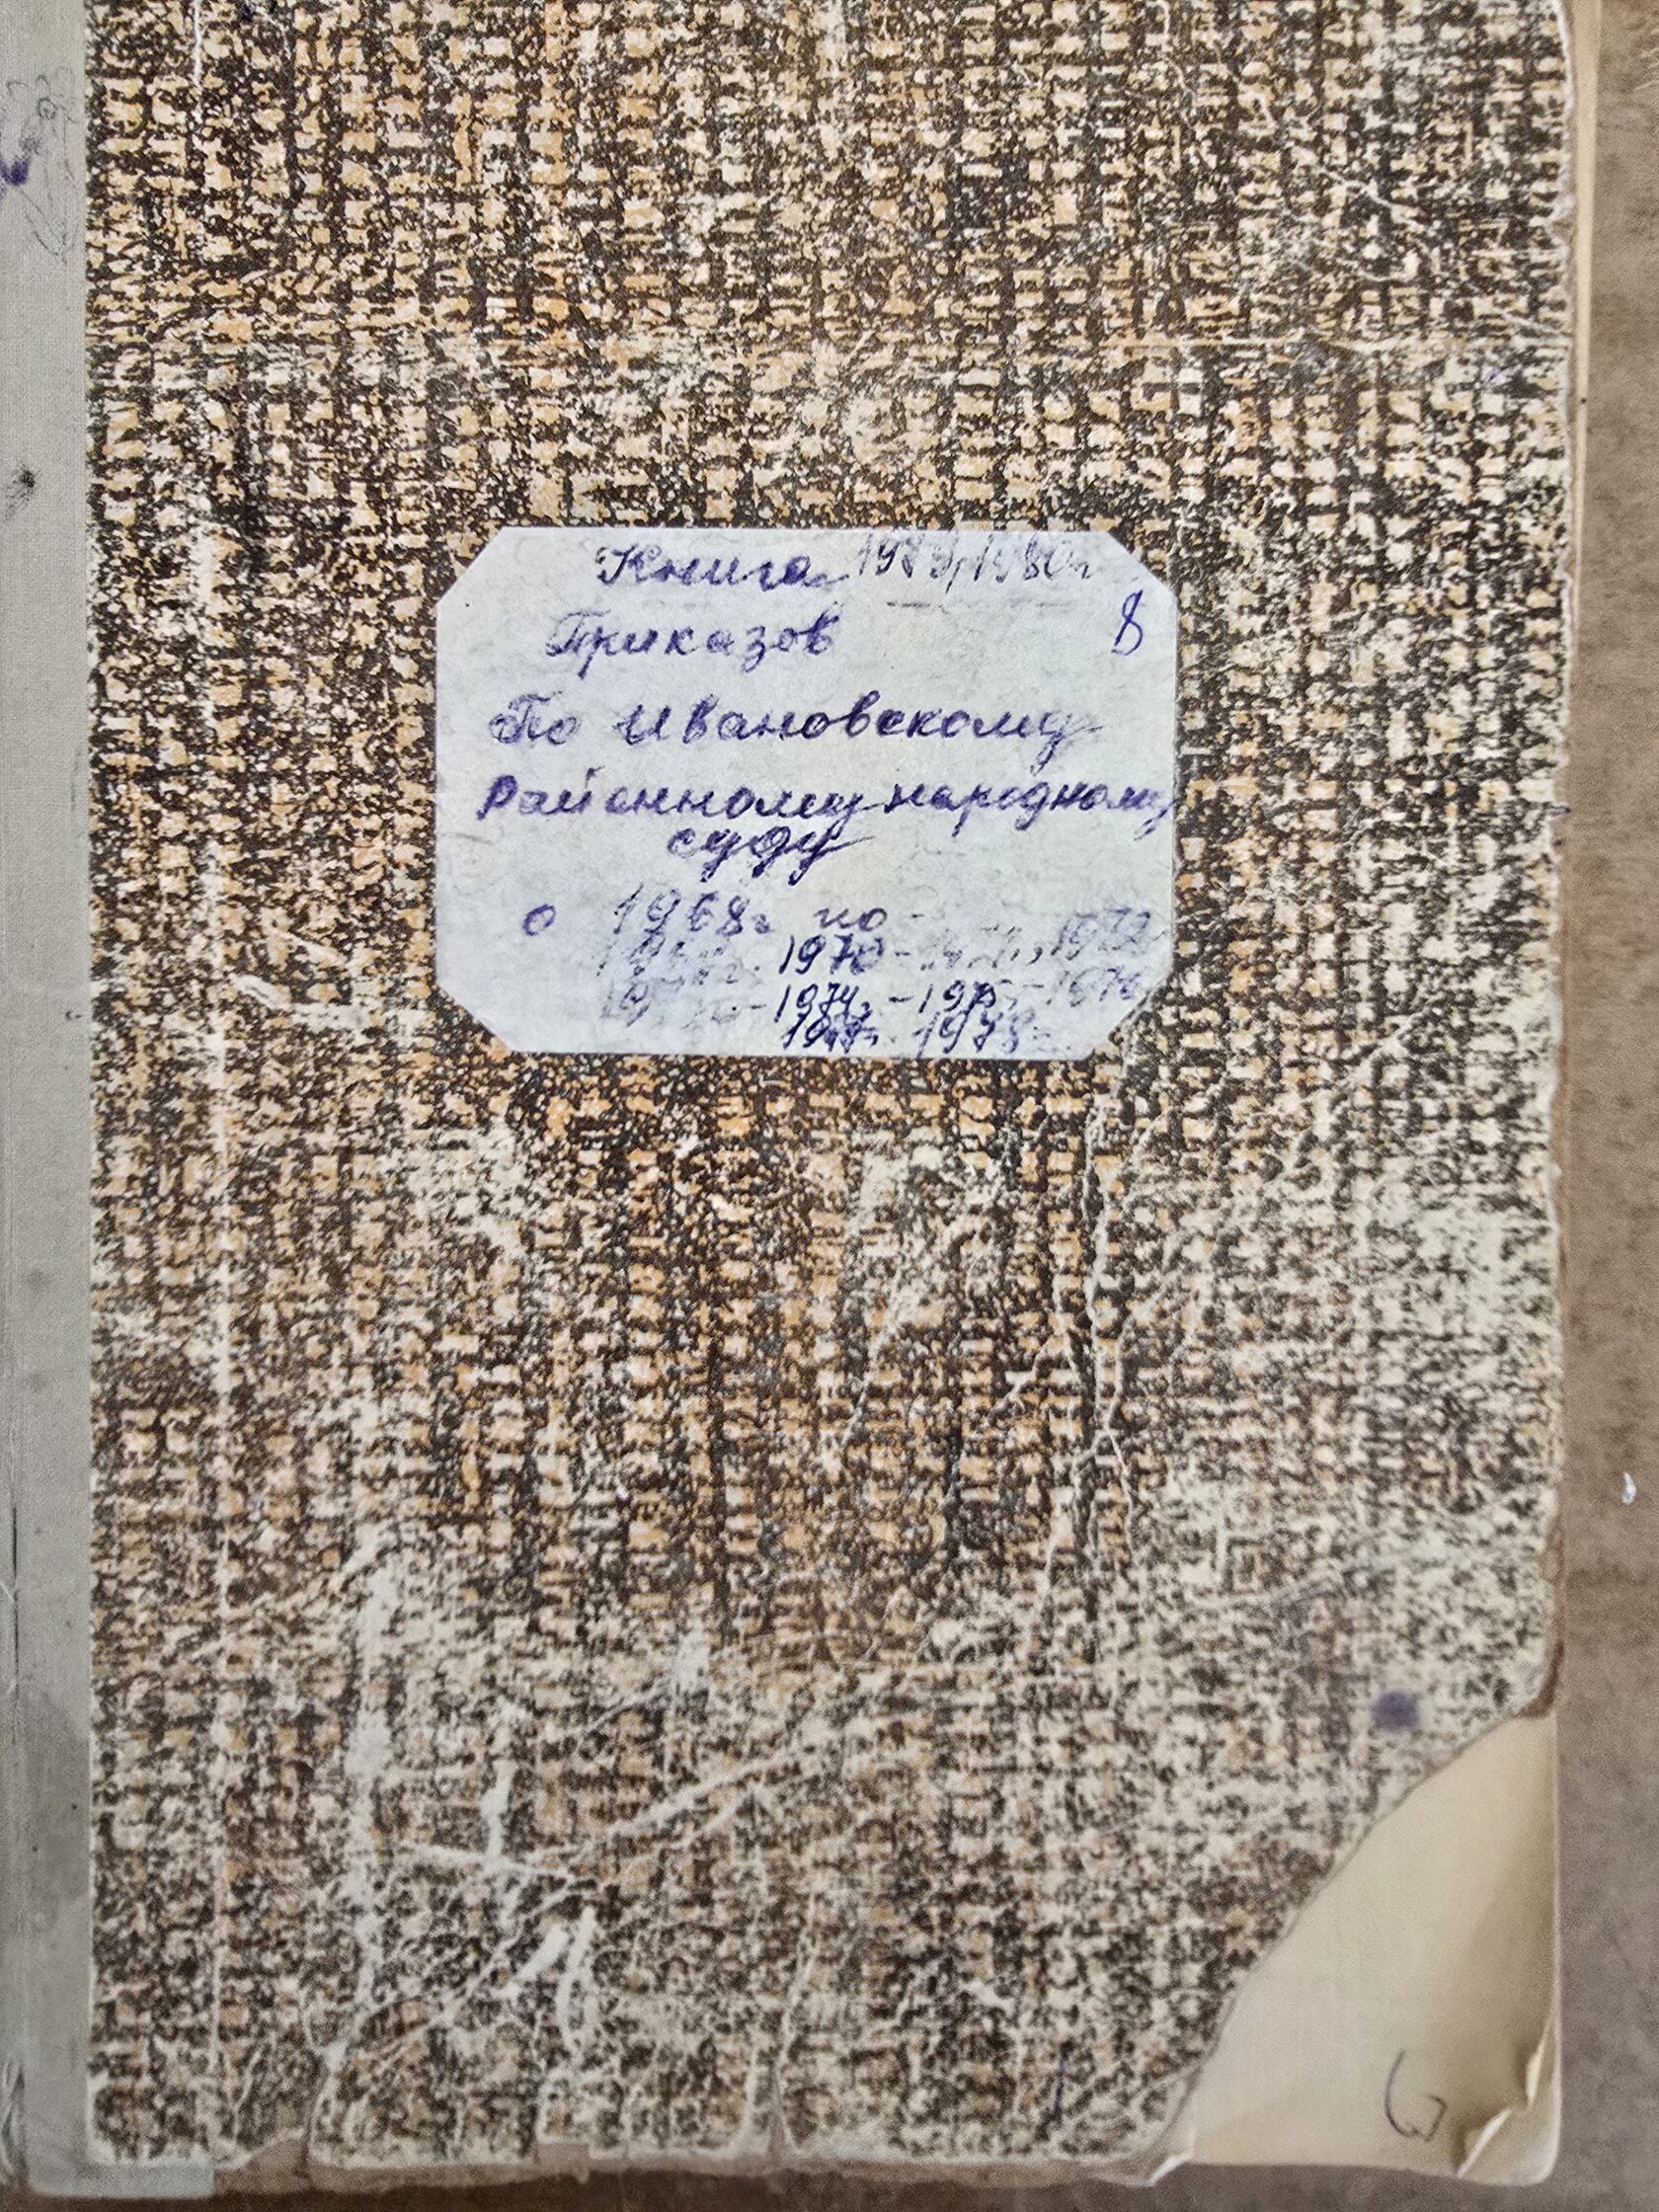 Книга 1979, 1980г
Приказов 8
По Ивановскому
Районному народному
суду
с 1968г по
1970
1974г. - 1975г. - 1976
1977г. 1978г